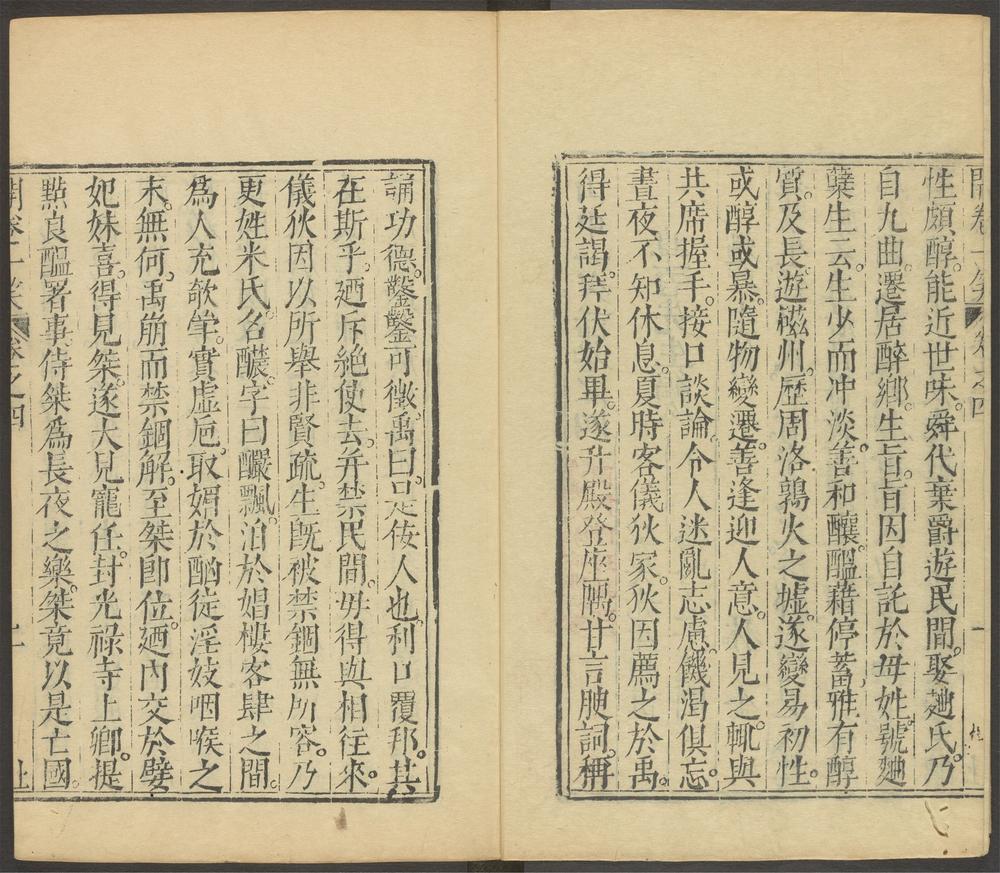 開卷一笑 卷之四 一
性頗醇。能近世味。舜代棄爵遊民間。娶麯氏。乃
自九曲。遷居醉鄉。生旨。旨因自託於母姓。號麯
櫱生云。生少而冲淡。善和釀。醞藉停蓄。雅有醇
質。及長。遊磁州。歷周洛鶉火之墟。遂變易初性。
或醇或暴。隨物變遷。善逢迎人意。人見之。輒與
共席握手。接口談論。令人迷亂志慮。饑渴俱忘。
晝夜不知休息。夏時客儀狄家。狄因薦之於禹。
得廷謁。拜伏始畢。遂升殿登座隅。甘言腴詞。稱
誦功德。鑿鑿可徵。禹曰。是佞人也。利口覆邦。其
在斯乎。廼斥絕使去。幷禁民間。毋得與相往來。
儀狄因以所舉非賢疏。生旣被禁錮無所容。乃
更姓米氏。名醲。字曰釅。飄泊於娼樓客肆之間。
爲人充欹掌。實虛卮。取媚於酗徒淫妓咽喉之
末。無何。禹崩而禁錮解。至桀卽位。廼內交於嬖
妃妹喜。得見桀。遂大見寵任。封光祿寺上卿。提
點良醞署事。侍桀爲長夜之樂。桀竟以是亡國。
開卷一笑 卷之四 二